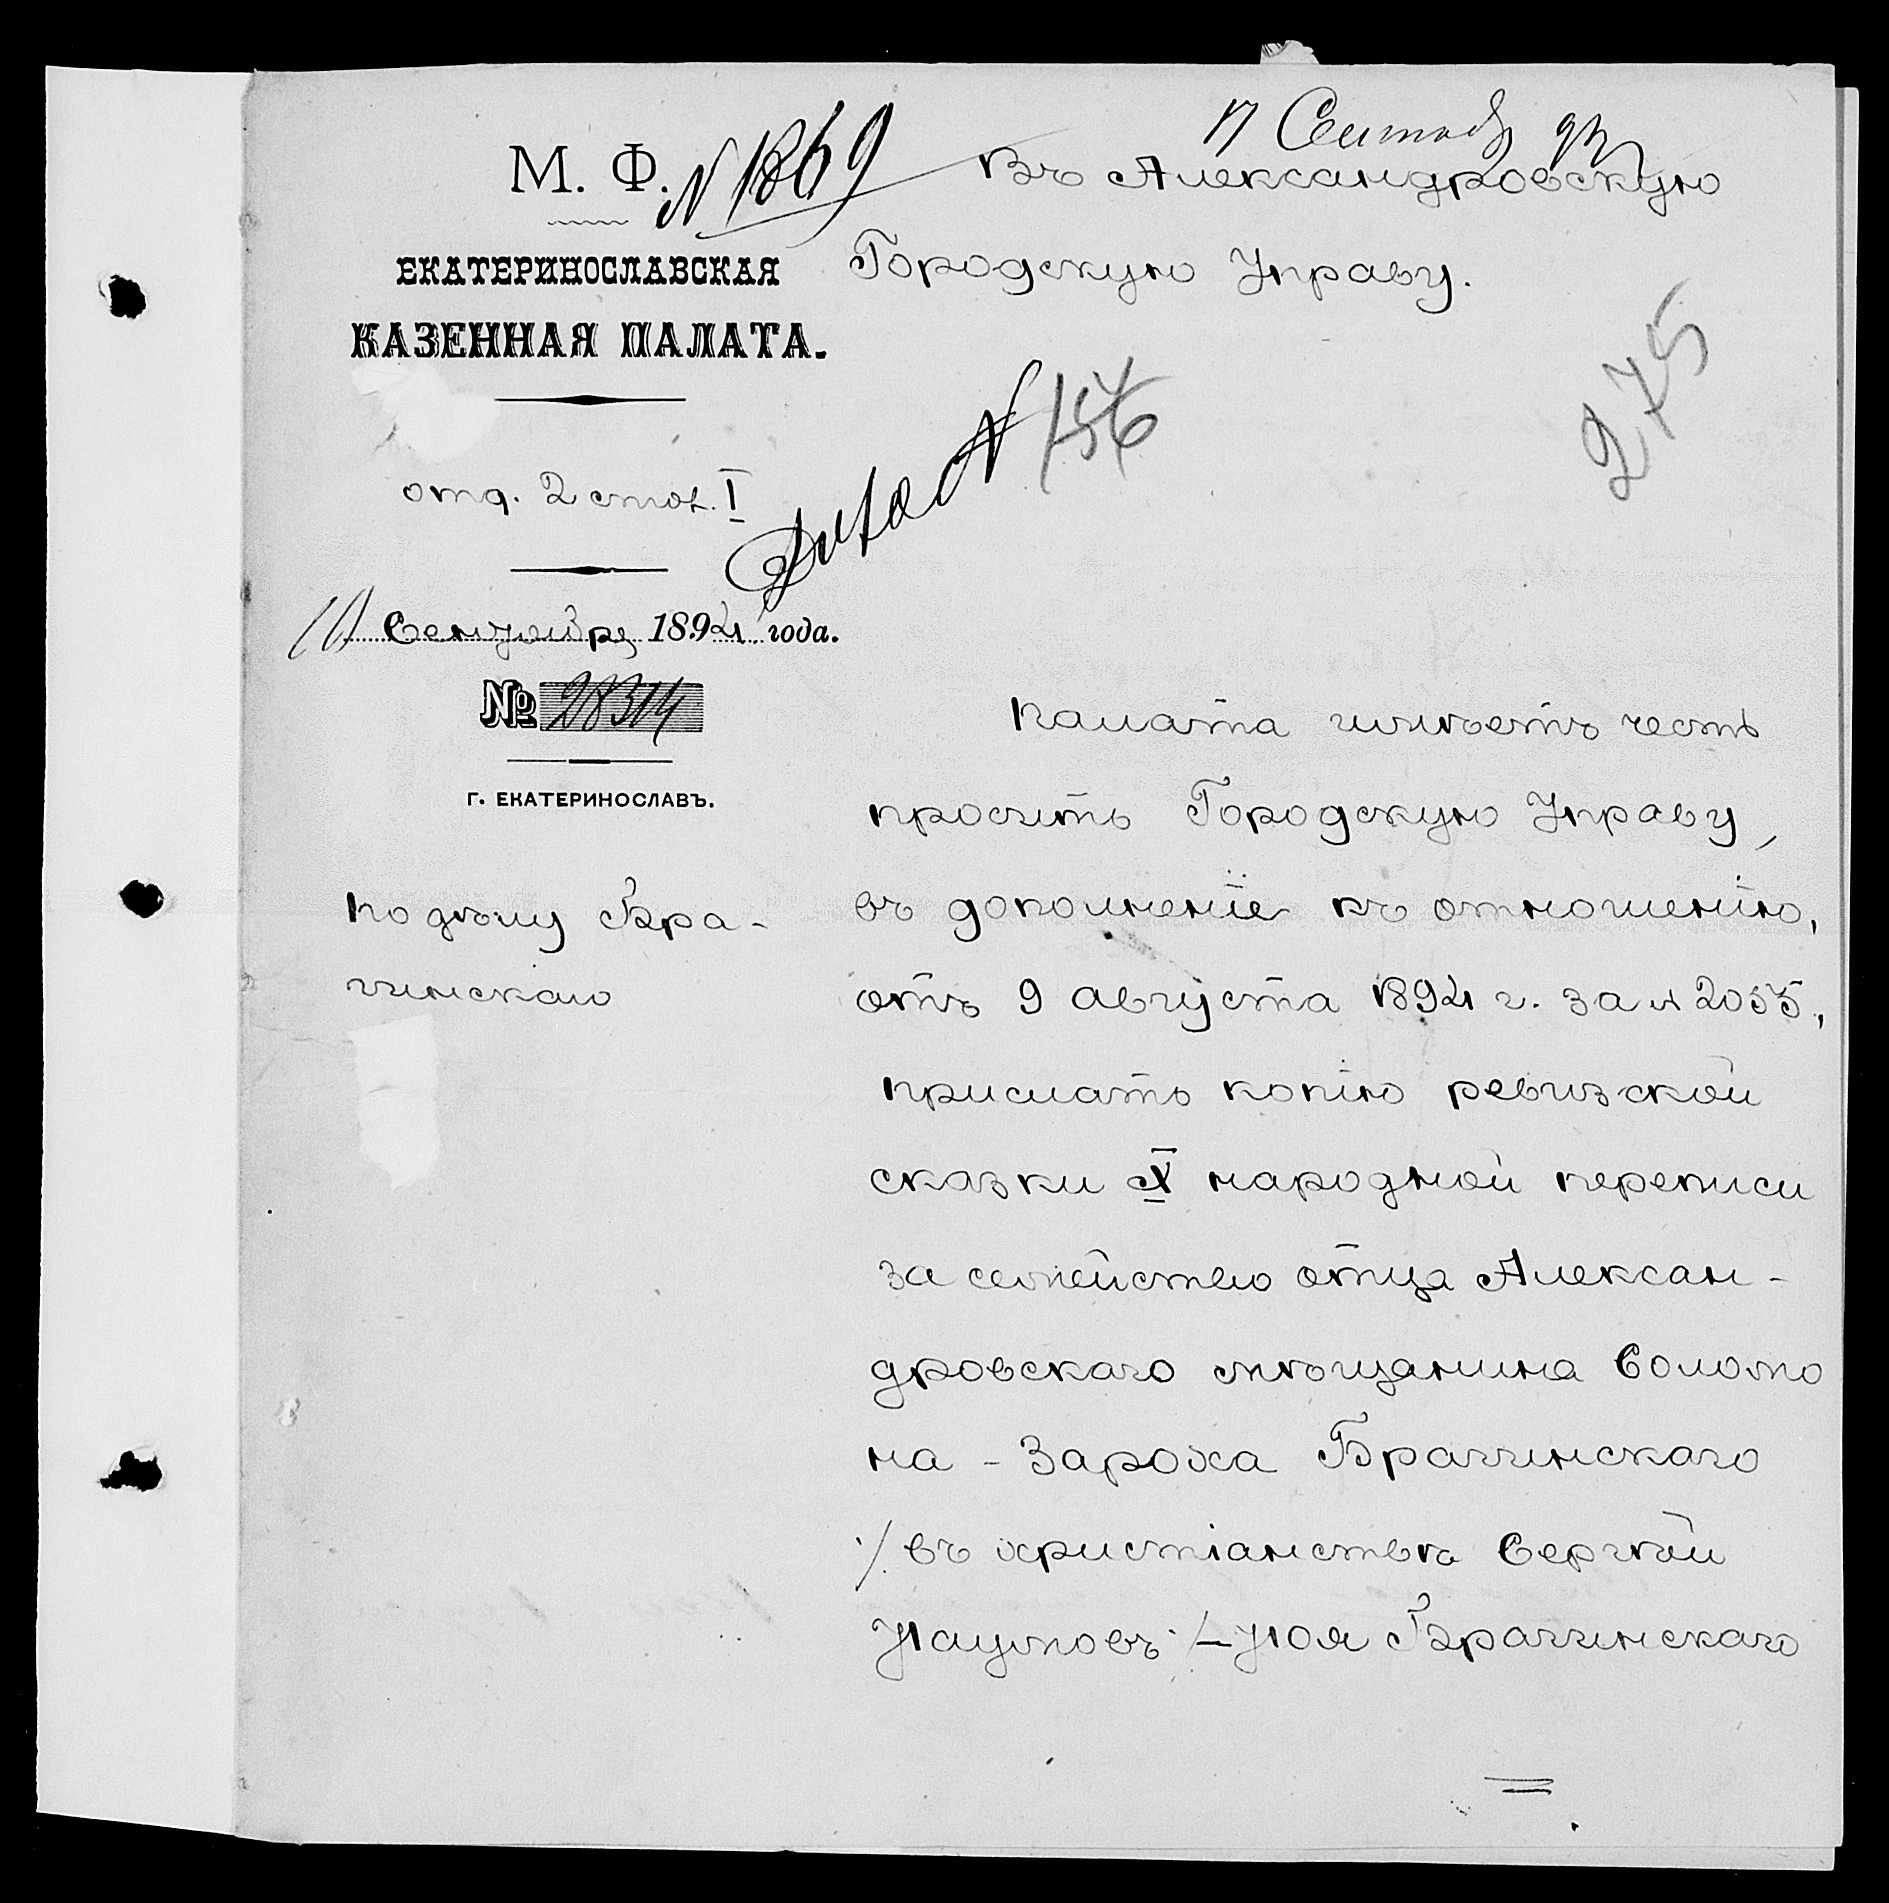 17 Сентяб 92
М. Ф.
N 1869
ЕКАТЕРИНОСЛАВСКАЯ
КАЗЕННАЯ ПАЛАТА.
отд. 2 стол. I
10 Сентября 1892 года.
№ 28314
г. ЕКАТЕРИНОСЛАВЪ.
По дѣлу Бра-
гинскаго
Въ Александровскую
Городскую Управу.
Дѣло N 156
275
Палата имѣетъ честь
просить Городскую Управу,
въ дополненіе къ отношенію,
отъ 9 августа 1892 г. за N 2055,
прислать копію ревизской
сказки X народной переписи
за семейство отца Алексан-
дровскаго мѣщанина Соломо
на - Зароха Брагинскаго
/въ христіанствѣ Сергѣй
Наумовъ/ - Ноя Брагинскаго